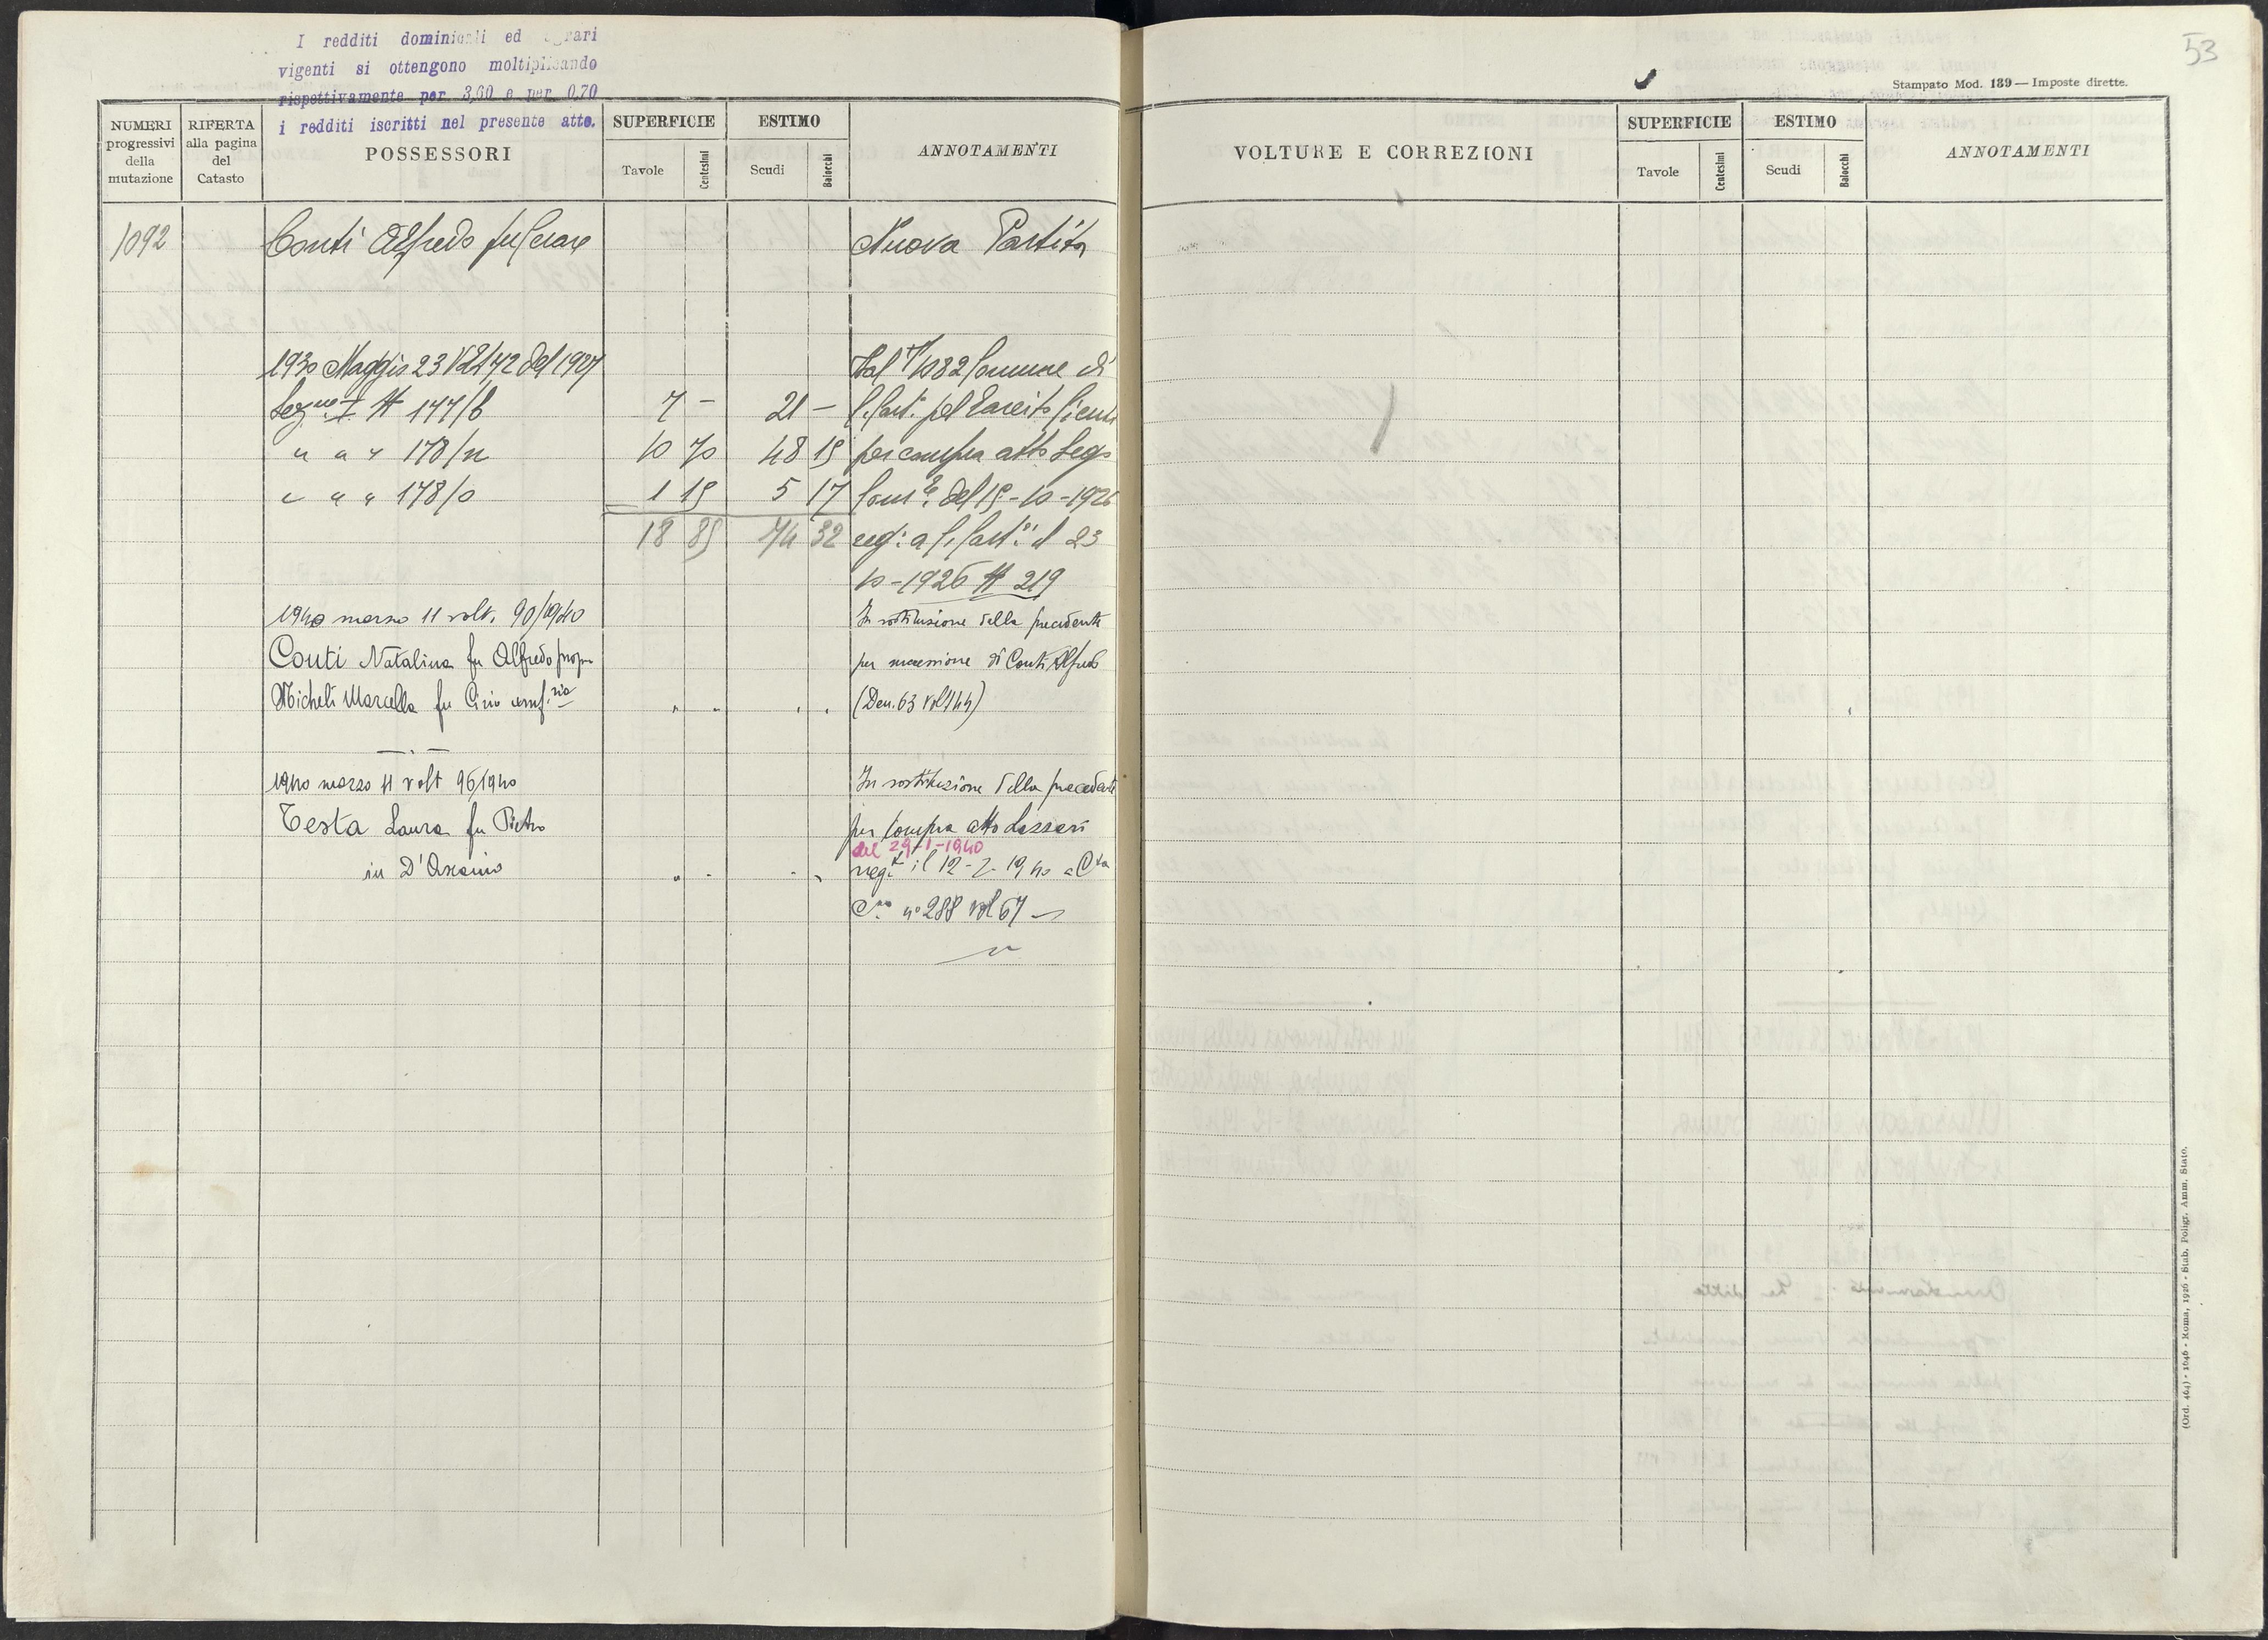 I redditi dominicali ed agrari
vigenti si ottengono moltiplicando
rispettivamente per 3,60 e per 0,70
i redditi iscritti nel presente atto.
53
Stampato Mod. 189 — Imposte dirette.
NUMERI progressivi della mutazione
RIFERTA alla pagina del Catasto
POSSESSORI
SUPERFICIE
Tavole
Centesimi
ESTIMO
Scudi
Baiocchi
ANNOTAMENTI
VOLTURE E CORREZIONI
SUPERFICIE
Tavole
Centesimi
ESTIMO
Scudi
Baiocchi
ANNOTAMENTI
1092 Conti Alfredo fu Cesare Nuova Partita
1930 Maggio 23 V 142 del 1927 Dal 1082 Comune di
Sezne I N 177/b 7 — 21 —
" " " 178/n 10 70 48 15 per compra atto Sego
" " " 178/o 1 15 5 17 del 15-10-1926
18 85 74 32 reg: a C. Cast: il 23
10-1926 N 219
1940 marzo 11 volt. 90/1940 In sostituzione della precedente
Conti Natalina fu Alfredo prop. per successione di Conti Alfredo
Micheli Marcella fu Ciro usuf.ria " " " " (Den. 63 vol 144)
1940 marzo 11 volt 96/1940 In sostituzione della precedente
Testa Laura fu Pietro per compra atto Lazzari
del 29-1-1940
in D'Ascanio " " " " reg.t il 12-2-1940 a C.ta
C.na n° 288 vol 67
(Ord. 464) - 1646 - Roma, 1926 - Stab. Poligr. Amm. Stato.